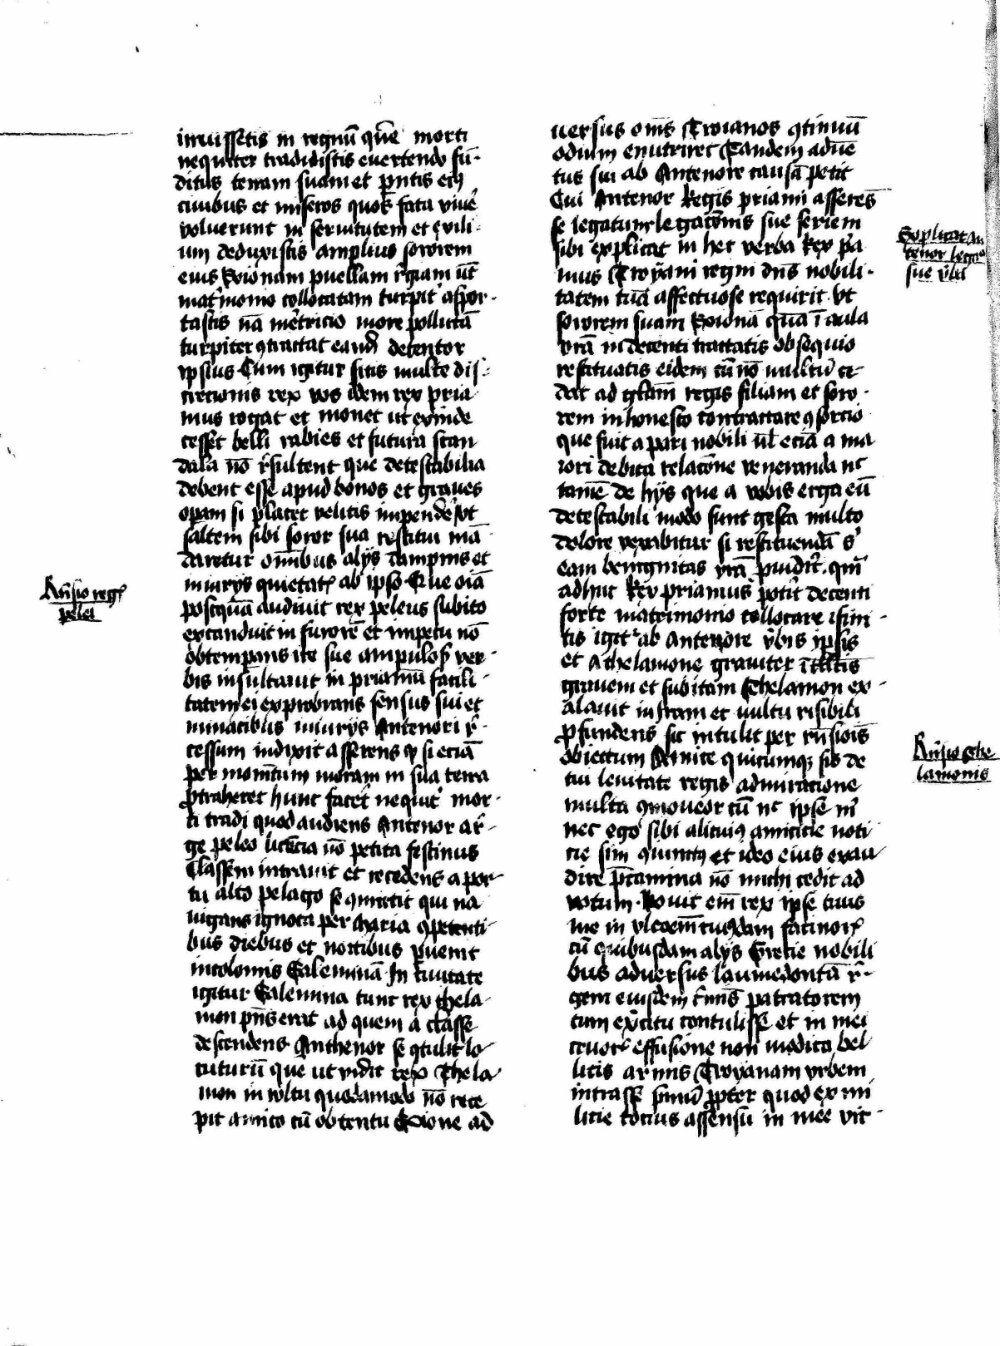 irruissetis in regnū q̄ue morti
nequiter tradidistis evertendo fū-
ditus terram suam et pn̄tis eiꝰ
civibus et miseros quos fata vive
voluerunt in servitutem et exili-
um deduxistis amplius sororem
eius Exionam puellam rᵉgiam ut̄
matrimonio collocatam turpitˀ aspor-
tastis nā me᷑tricio more pollutā
turpiter ꝯtractat eandē detentor
ipsius Cum igitur sitis multe dis-
cretionis rex vos idem rex pria
mus rogat et monet ut exinde
cesset belli rabies et futura scan
dala nō rᵉsultent que detestabilia
debent esse apud bonos et graves
opam si placet velitis impendeˀ ut
saltem sibi soror sua restitui mā
daretur om̄ibus alijs dampnis et
iniurijs quietatˀ ab ipso Que oīa
posꝗuā audivit rex peleus subito
excanduit in furorē et impetu nō
obtemperans ire sue ampulosˀ ver-
bis insultavit in priamū facili-
tatem ei exprobrans sensus sui et
minacibus iniurijs Antenori rᵉ-
cessum indixit asserens ꝙ si eciā
per momētum moram in sua terra
ꝓtraheret hunc faceret nequitˀ mor-
ti tradi quod audiens Antenor a rᵉ-
ge peleo licēcia nō petita festinus
Classem intravit et recedens a por-
tu alto pelago se ꝯmictit qui na
vigans ignota per maria ꝯpetenti-
bus diebus et noctibus ꝑvenit
incolomis Saleminā In civitate
igitur Salemina tunc rex thela-
mon pn̄s erat ad quem a classe
descendens Anthenor se ꝯtulit lo-
cuturū que ut vidit rex Thela
mon in vultu quodamodo nō rece
pit amico cū obtentu Exione ad
versus om̄s Troianos ꝯtinuū
odium enutriret Tandem adven
tus sui ab Antenore causā petit
Cui Antenor Regis priami asserēs
se legatum legacōnis sue seriem
sibi explicat in hec verba Rex pria
mus Troyani regni dn̄s nobili-
tatem tuā affectuose requirit ut
sororem suam Exionā quā ī aula
vrā in decenti tractatis obsequio
restituatis eidem cū nō multū ce
dat ad gl̄am regis filiam et soro-
rem inhonesto contractare ꝯsorcio
que fuit a pari nobili vl̄ eciā a ma
iori debita relacōne veneranda nec
tamē de hijs que a vobis erga eū
detestabili modo sunt gesta multo
dolore vexabitur si restituendā sˀ
eam benignitas vrā ꝓviditˀ. qm̄
adhuc Rex priamus potit decenti
forte matrimonio collocare ip̄am
tis igitˀ ab Antenore vˀbis ipsis
et A thelamone graviter ītellᶜtis
gravem et subitam Thelamon ex-
alavit in iram et vultu risibili
ꝓfundens sic intulit per rn̄sionis
obiectum Amice quicumqꝫ sis de
tui levitate regis admiracione
multa ꝯmoveor cū nec ipse mˀ
nec ego sibi alicuiꝰ amicicie noti
cie sim ꝯiunctꝰ et ideo eius exau
dire ꝓtamina nō michi cedit ad
votum. Novit em̄ rex ipse tuus
me in ulcōem cuiusdam facinorˀ
cū quibusdam alijs Grecie nobili
bus adversus Laumedontā rᵉ-
gem eiusdem crīnis patratorem
cum exˀcitu contulisse et in mei
cruorˀ effusione non modica bel
licis armis Troyanam urbem
intrasse primū ꝓpter quod ex mi
licie tocius assensu in mee vic-
Rn̄sio regˀ
pelei
Explicat an
tenor legacō
sue vˀba
Rn̄sio the
lamonis